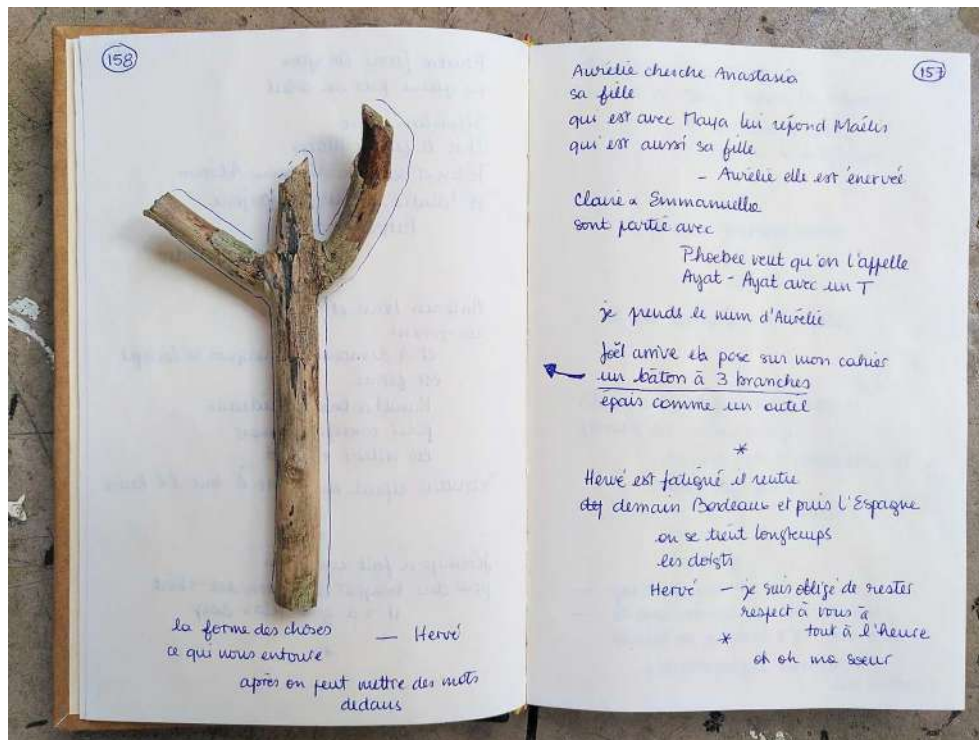 158
la forme des choses — Hervé
ce qui nous entoure
après on peut mettre des mots
dedans
157
Aurélie cherche Anastasia
sa fille
qui est avec Maya lui répond Maélis
qui est aussi sa fille
- Aurélie elle est énervée
Claire & Emmanuelle
sont partie avec
Phoebee veut qu'on l'appelle
Ayat - Ayat avec un T
je prends le num d'Aurélie
Joël arrive et pose sur mon cahier
un bâton à 3 branches
épais comme un outil
*
Hervé est fatigué il rentre
demain Bordeaux et puis l'Espagne
on se tient longtemps
les doigts
Hervé — je suis obligé de rester
respect à vous à
tout à l'heure
*
oh oh ma soeur